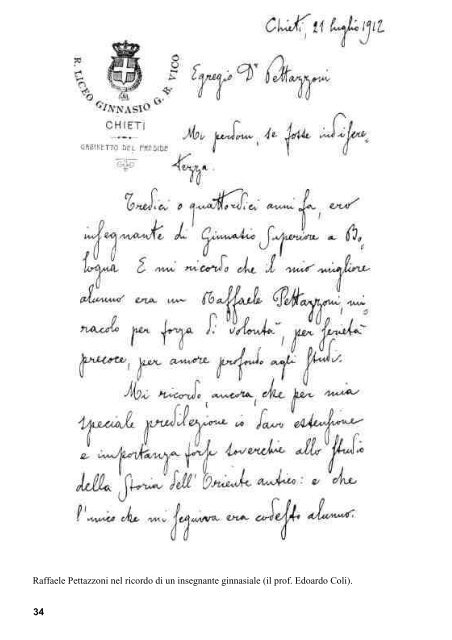 Chieti, 21 luglio 1912
R. LICEO GINNASIO G. B. VICO
CHIETI
GABINETTO DEL PRESIDE
Egregio Dr Pettazzoni
Mi perdoni, se fosse indiscre-
tezza.
Tredici o quattordici anni fa, ero
insegnante di Ginnasio Superiore a Bo-
logna E mi ricordo che il mio migliore
alunno era un Raffaele Pettazzoni, mi-
racolo per forza di volontà, per serietà
precoce, per amore profondo agli studi.
Mi ricordo, ancora, che per mia
speciale predilezione io davo estensione
e importanza forse soverchie allo studio
della Storia dell'Oriente antico: e che
l'unico che mi seguiva era codesto alunno.
Raffaele Pettazzoni nel ricordo di un insegnante ginnasiale (il prof. Edoardo Coli).
34